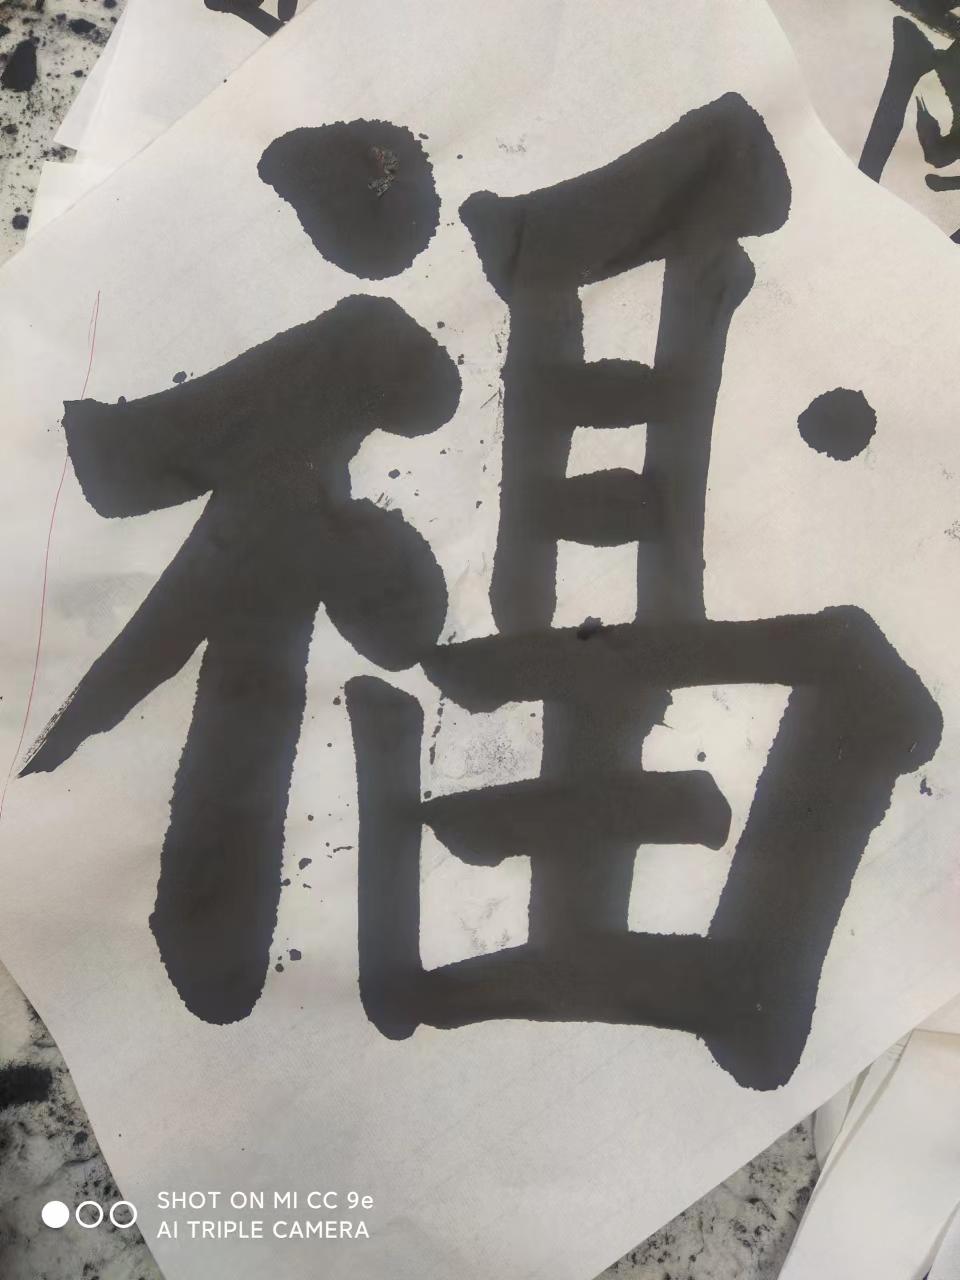 福
SHOT ON MI CC 9e
AI TRIPLE CAMERA